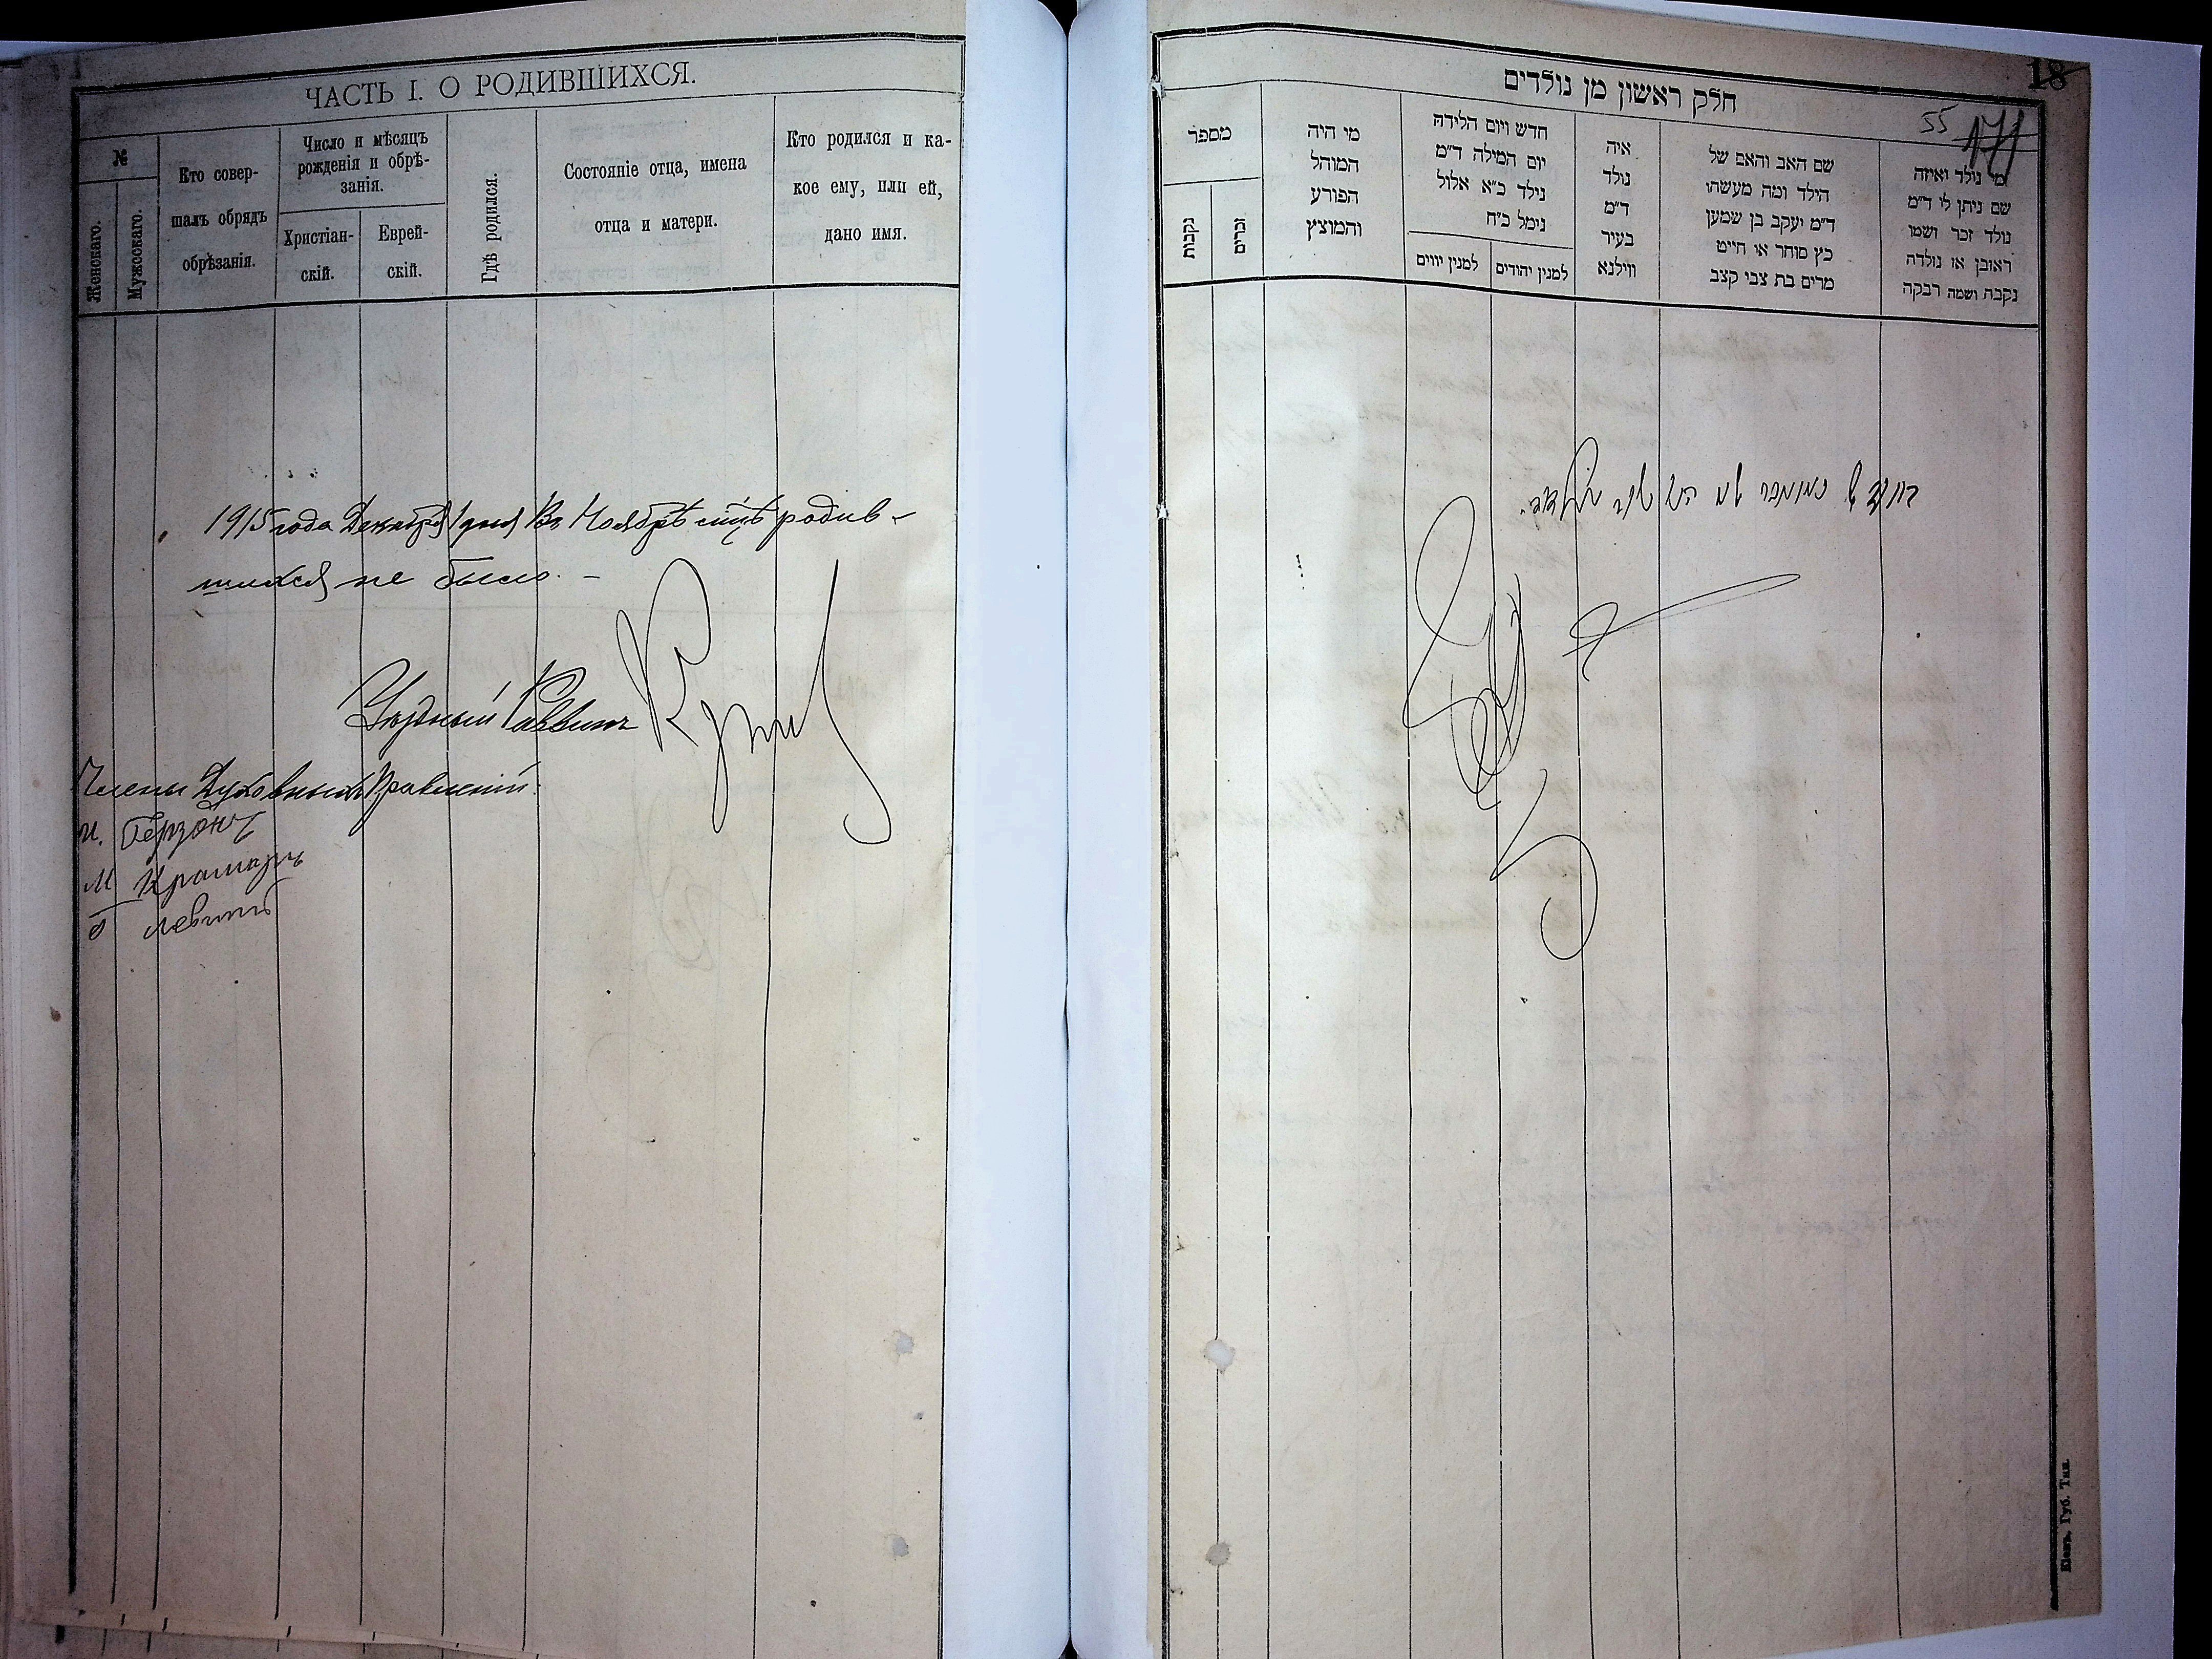 ЧАСТЬ I. О РОДИВШИХСЯ.
№
Женскаго.
Мужескаго.
Кто совер-
шалъ обрядъ
обрѣзанія.
Число и мѣсяцъ
рожденія и обрѣ-
занія.
Христіан-
скій.
Еврей-
скій.
Гдѣ родился.
Состояніе отца, имена
отца и матери.
Кто родился и ка-
кое ему, или ей,
дано имя.
1915 года Декабря 1 дня Въ Ноябрѣ родив-
шихся не было. –
Уѣздный Раввинъ
Члены Духовныхъ Правленій:
И. Герзонъ
М Крамаръ
Левинъ
18
55
171
חלק ראשון מן נולדים
מספר
נקבות
זכרים
מי היה
המוהל
הפורע
והמוצץ
חדש ויום הלידה
יום המילה ד״מ
נילד כ״א אלול
נימל כ״ח
למנין יווים
למנין יהודים
איה
נולד
ד״מ
בעיר
ווילנא
שם האב והאם של
הילד ומה מעשהו
ד״מ יעקב בן שמען
כץ סוחר או חייט
מרים בת צבי קצב
מי נולד ואיזה
שם ניתן לי ד״מ
נולד זכר ושמו
ראובן או נולדה
נקבה ושמה רבקה
Кіевъ. Губ. Тип.